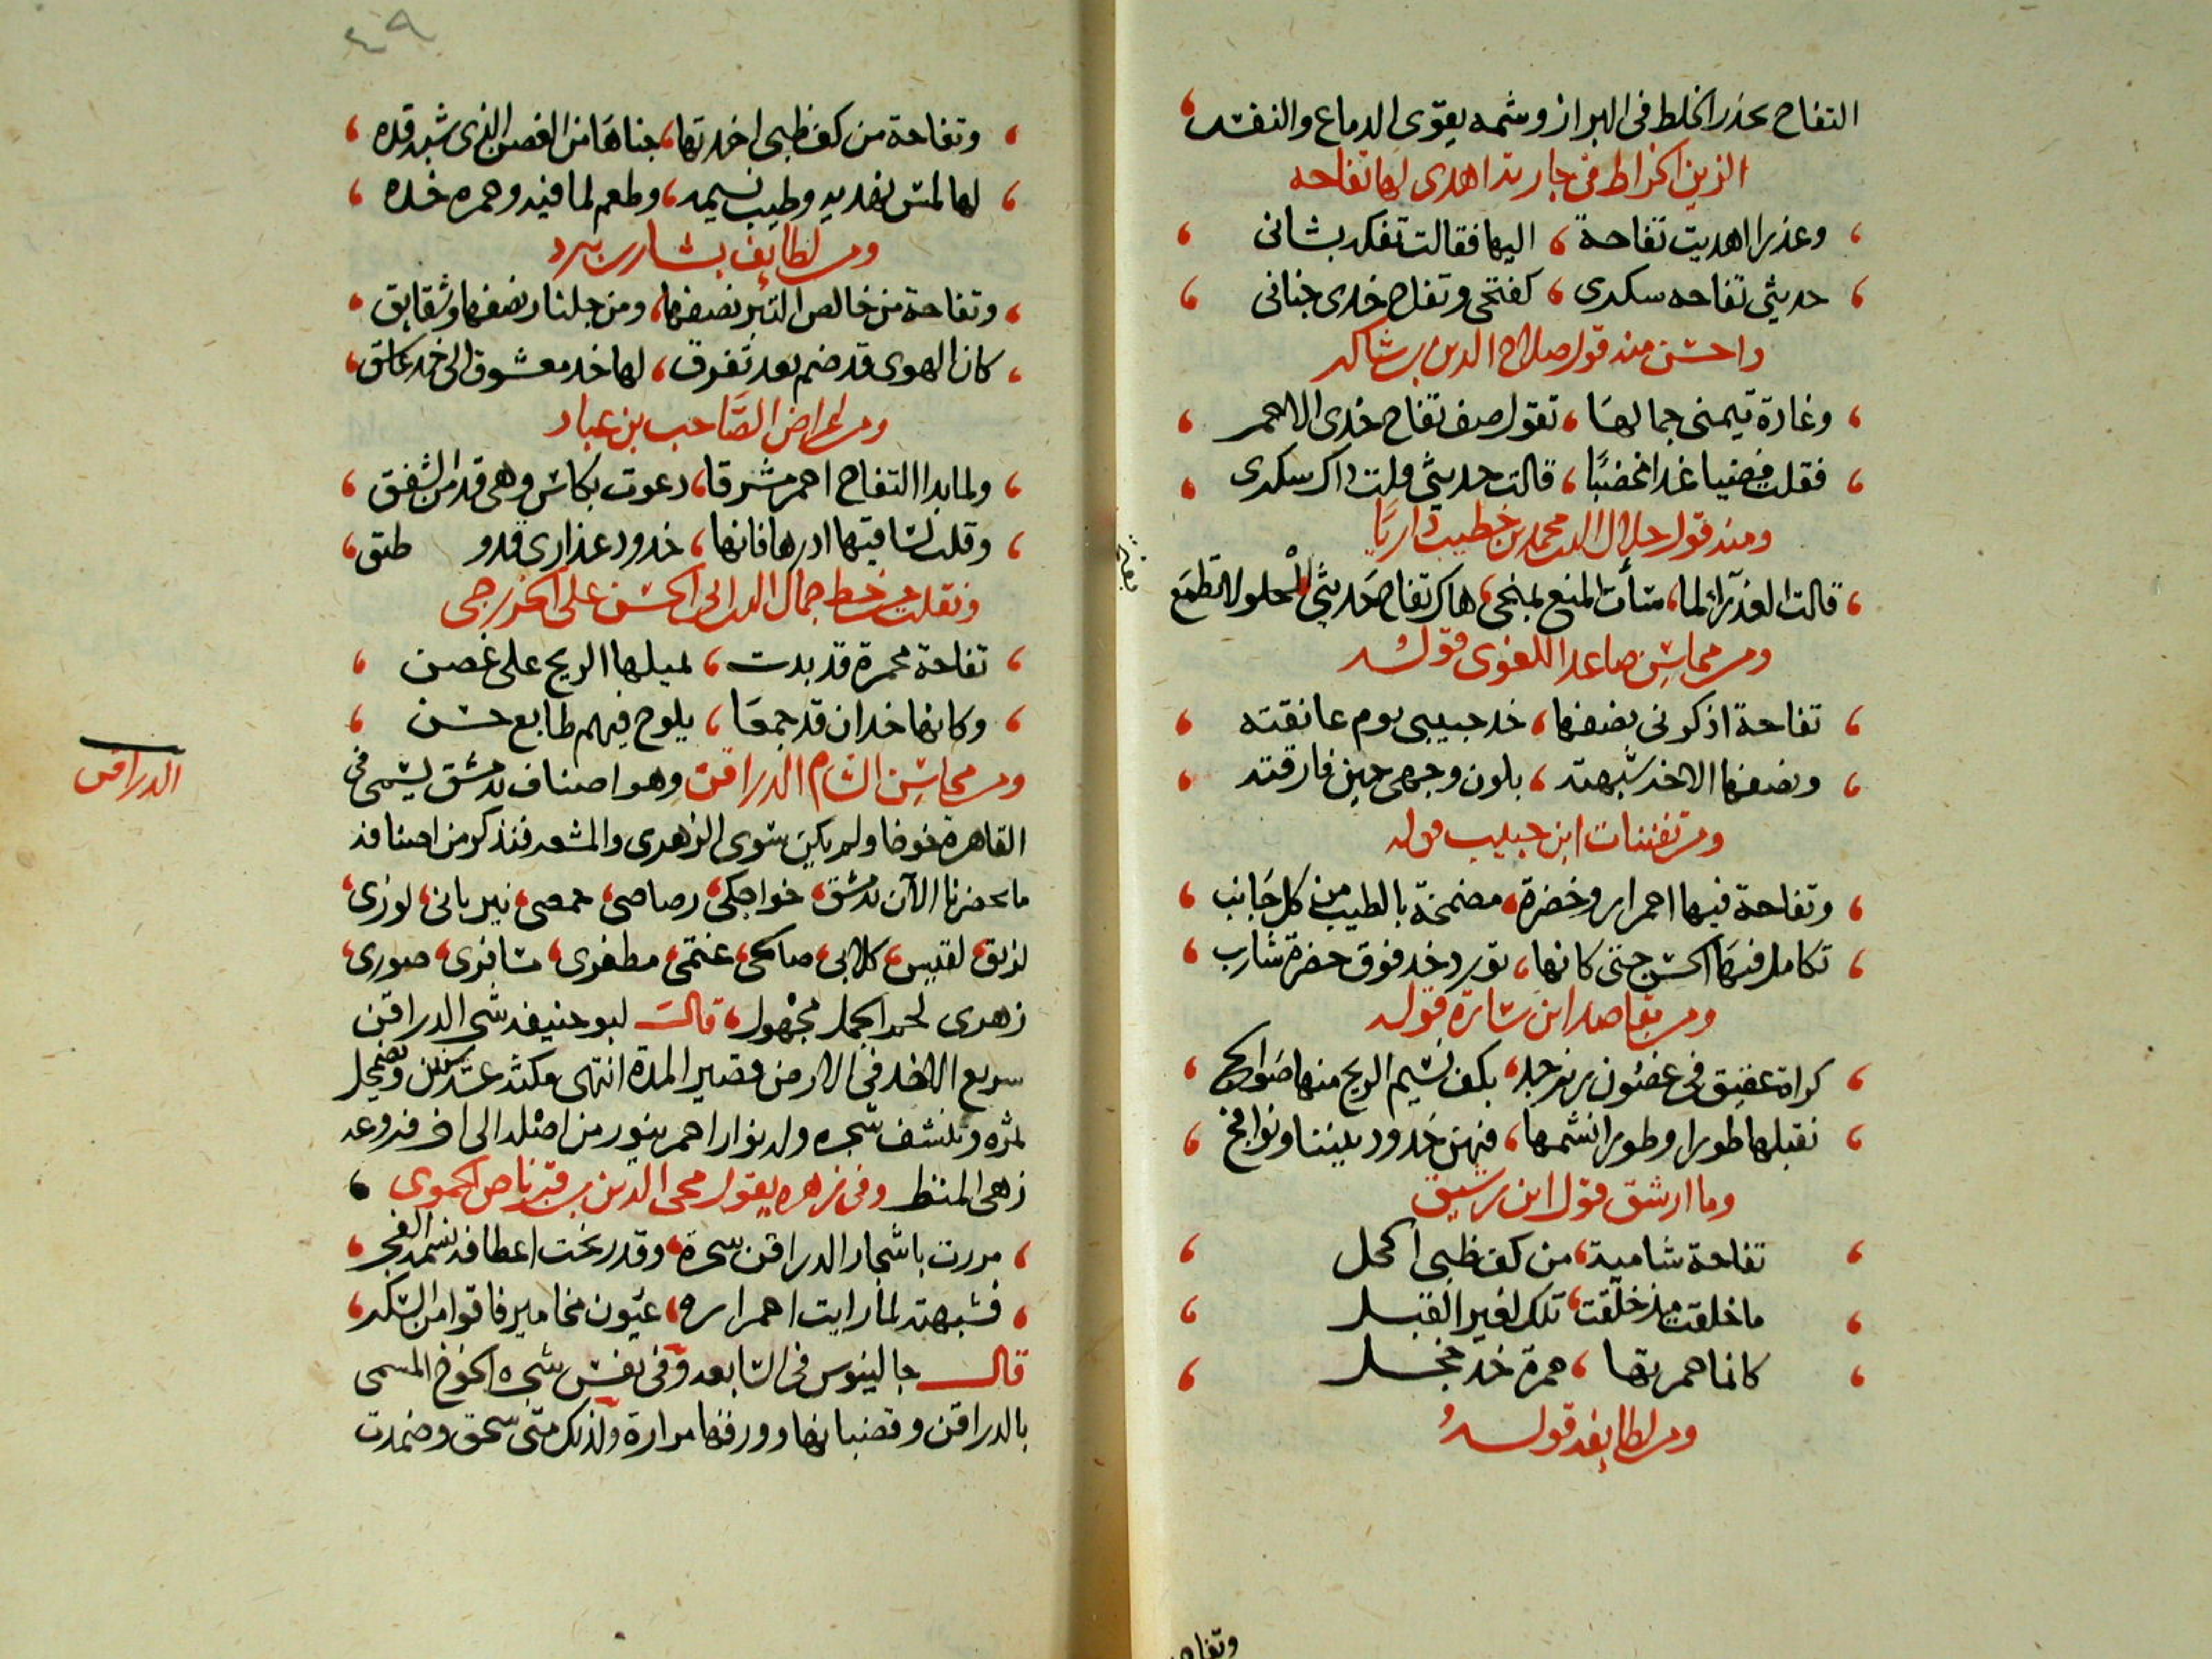 التفاح يحذر الخلط في البراز وشمه يقوى الدماغ والنفس
الزين الخراط في جارية اهدى لها تفاحه
وعذرا اهديت تفاحة اليها فقالت تفكر بشانى
حديثى تفاحه سكرى كفتحى وتفاح خدى جنانى
واحسن منه قول صلاح الدين بن شاكر
وغادة تيمنى جمالها تقول صف تفاح خدى الاحمر
فقلت فضيا غدا مخضبًا قالت حديثى قلت ذاك سكرى
ومنه قول جلال الدين محمد بن خطيب داريّا
قالت العذرا لما سأت المنع لمنحى هاك تفاح حديثى الحلو لا تطمع
ومن محاسن صاعد اللغوى قوله
تفاحة اذكرنى نصفها خد حبيبى يوم عانقته
ونصفها الاخر شبهته بلون وجهى حين فارقته
ومن تفننات ابن حبيب قوله
وتفاحة فيها احمرار وخضرة مضمخة بالطيب من كل جانب
تكامل فيها الحسن حتى كانها تورد خد فوق خضرة شارب
ومن مقاصد ابن سارة قوله
كراة عقيق فى غصون زبرجد بكف نسيم الريح منها صوالج
نقبلها طورا وطورا نشمها فهن خدود بيننا ونوافج
وما ارشق قول ابن رشيق
تفاحة شامية من كف ظبى اكحل
ما خلقت مذ خلقت تلك لغير القبل
كانما حمرتها حمرة خد خجل
ومن لطايفه قوله
وتفاحة
٤٩
وتفاحة من كف ظبى اخذتها جناها من الغصن الذى شبه قده
لها لمس نهديه وطيب نسيمه وطعم لما فيه وحمره خده
ومن لطايف بشار بن برد
وتفاحة من خالص التبر نصفها ومن جلنار نصفها وشقايق
كان الهوى قد ضم بعد تفرق لها خد معشوق الى خد عاشق
ومن اغراض الصاحب بن عباد
ولما بدا التفاح احمر مشرقا دعوت بكاس وهى قد من الشفق
وقلت لساقيها ادرها فانها خدود عذارى قدو طبق
ونقلت من خط جمال الدين ابى الحسن على الخزرجى
تفاحة محمرة قد بدت لميلها الريح على غصن
وكانها خدان قد جمعا يلوح فيهم طابع حسن
ومن محاسن الشام الدراقن وهو اصناف بدمشق يسمى فى
القاهرة خوخا ولم يكن سوى الزهرى والمشعر فنذكر من اصنافه
ما يحضرنا الآن بدمشق خواجكى رصاصى حمصى نيربانى لوزى
لزيق لقيس كلابى صالحى غتمى مظفرى سابزى صورى
زهرى لحم الجمل مجهول قالت ابو حنيفه شجر الدراقن
سريع الاخذ فى الارض قصير المدة انتهى مكثه عشر سنين ويضمحل
ثمره وتنشف شجره وله نوار احمر ينور من اصله الى اخر فروعه
زهى المنظر وفى زهره يقول محى الدين بن قرناص الحموى
مررت باشجار الدراقن سحرة وقد رنحت اعطافه نسمة الفجر
فشبهته لما رايت احمراره عيون مخامير فاقوا من السكر
قال جالينوس فى السابعه وفى نفس شجره الخوخ المسمى
بالدراقن وقضبانها وورقها مرارة ولذلك متى سحق وضمدت
الدراقن